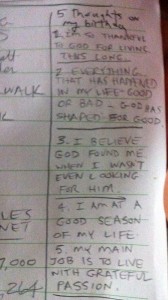 5 Thoughts on
my birthday
1. I'M SO THANKFUL
TO GOD FOR LIVING
THIS LONG.
2 EVERYTHING
THAT HAS HAPPENED
WALK
IN MY LIFE-GOOD
OR BAD - GOD HAS
SHAPED FOR GOOD
3. I BELIEVE
GOD FOUND ME
WHEN I WASN'T
EVEN LOOKING
FOR HIM.
4. I AM AT A
LES
GOOD SEASON
NET
OF MY LIFE.
5. MY MAIN
7,000
JOB IS TO LIVE
WITH GRATEFUL
,264
PASSION.